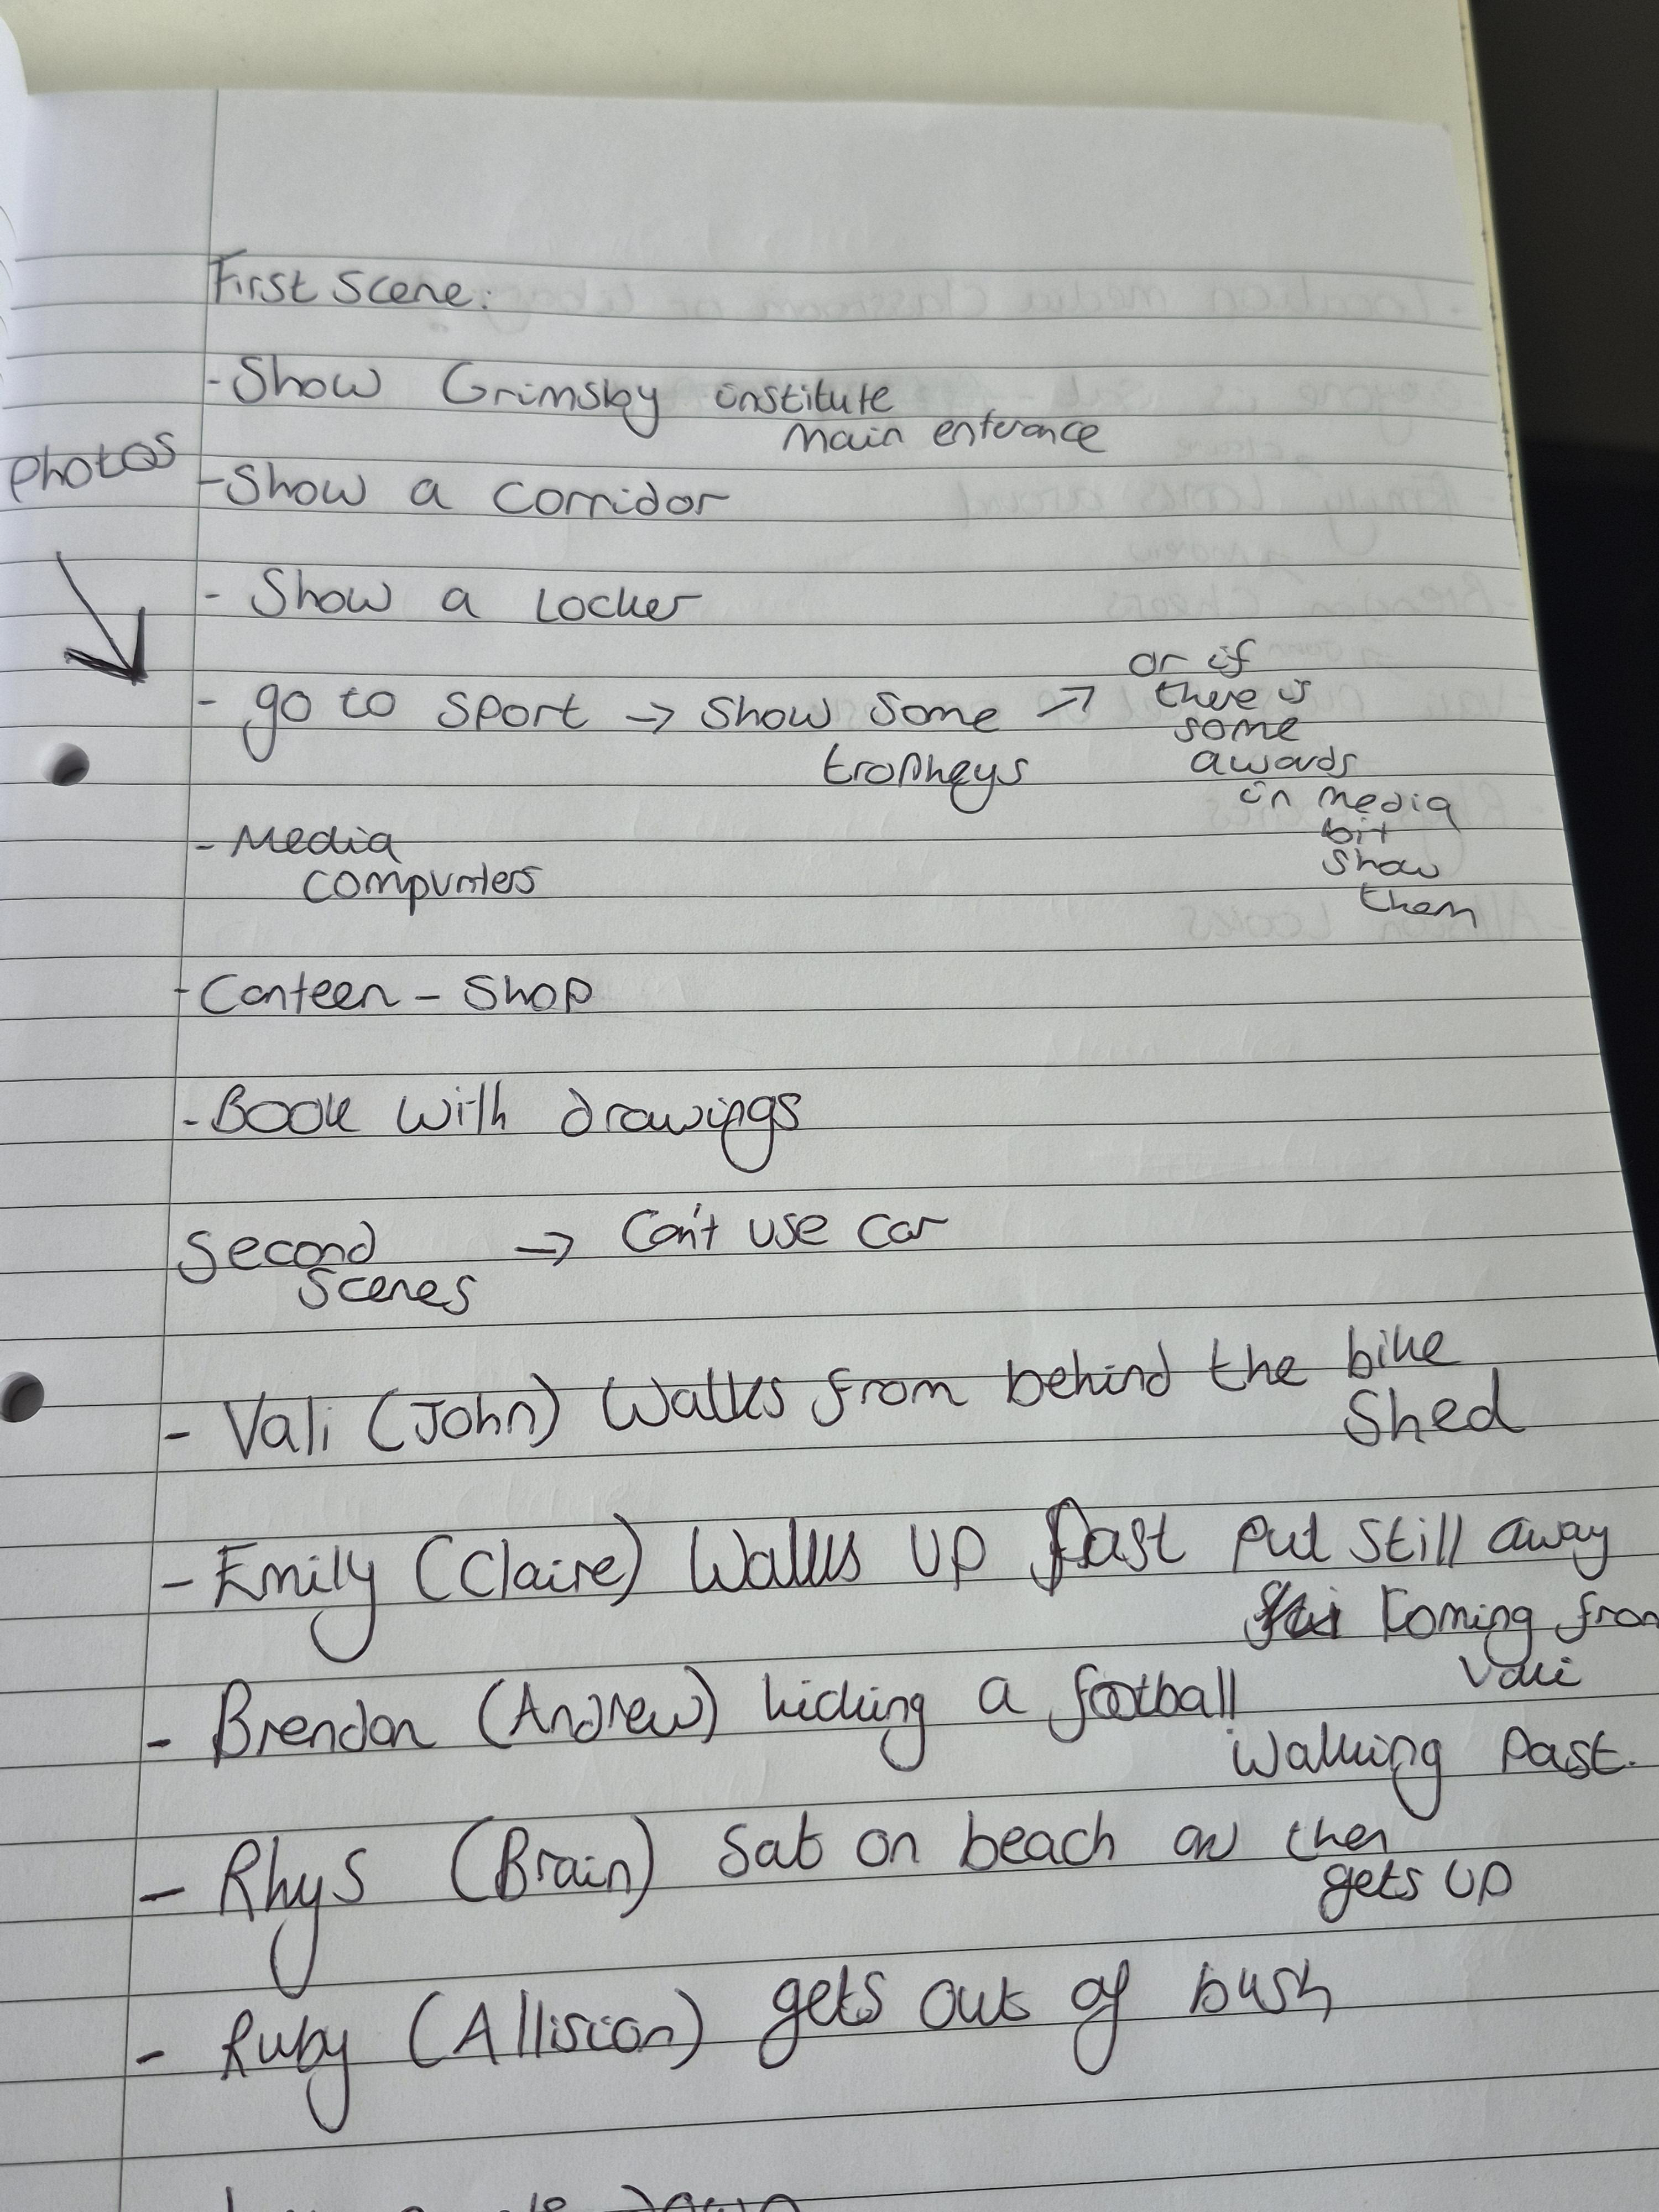 First scene:
- Show Grimsby institute
main enterance
Photos
- Show a corridor
- Show a Locker
- go to sport → show some ↗
tropheys
or if
there is
some
awards
in media
bit
show
them
- Media
- Canteen - shop
- Book with drawings
Second → Can't use car
Scenes
- Vali (John) Walks from behind the bike
Shed
- Emily (Claire) Walks up fast put still away
Coming from
Vali
- Brendon (Andrew) kicking a football
walking past.
- Rhys (Brain) Sat on beach an then
gets up
- Ruby (Allision) gets out of bush